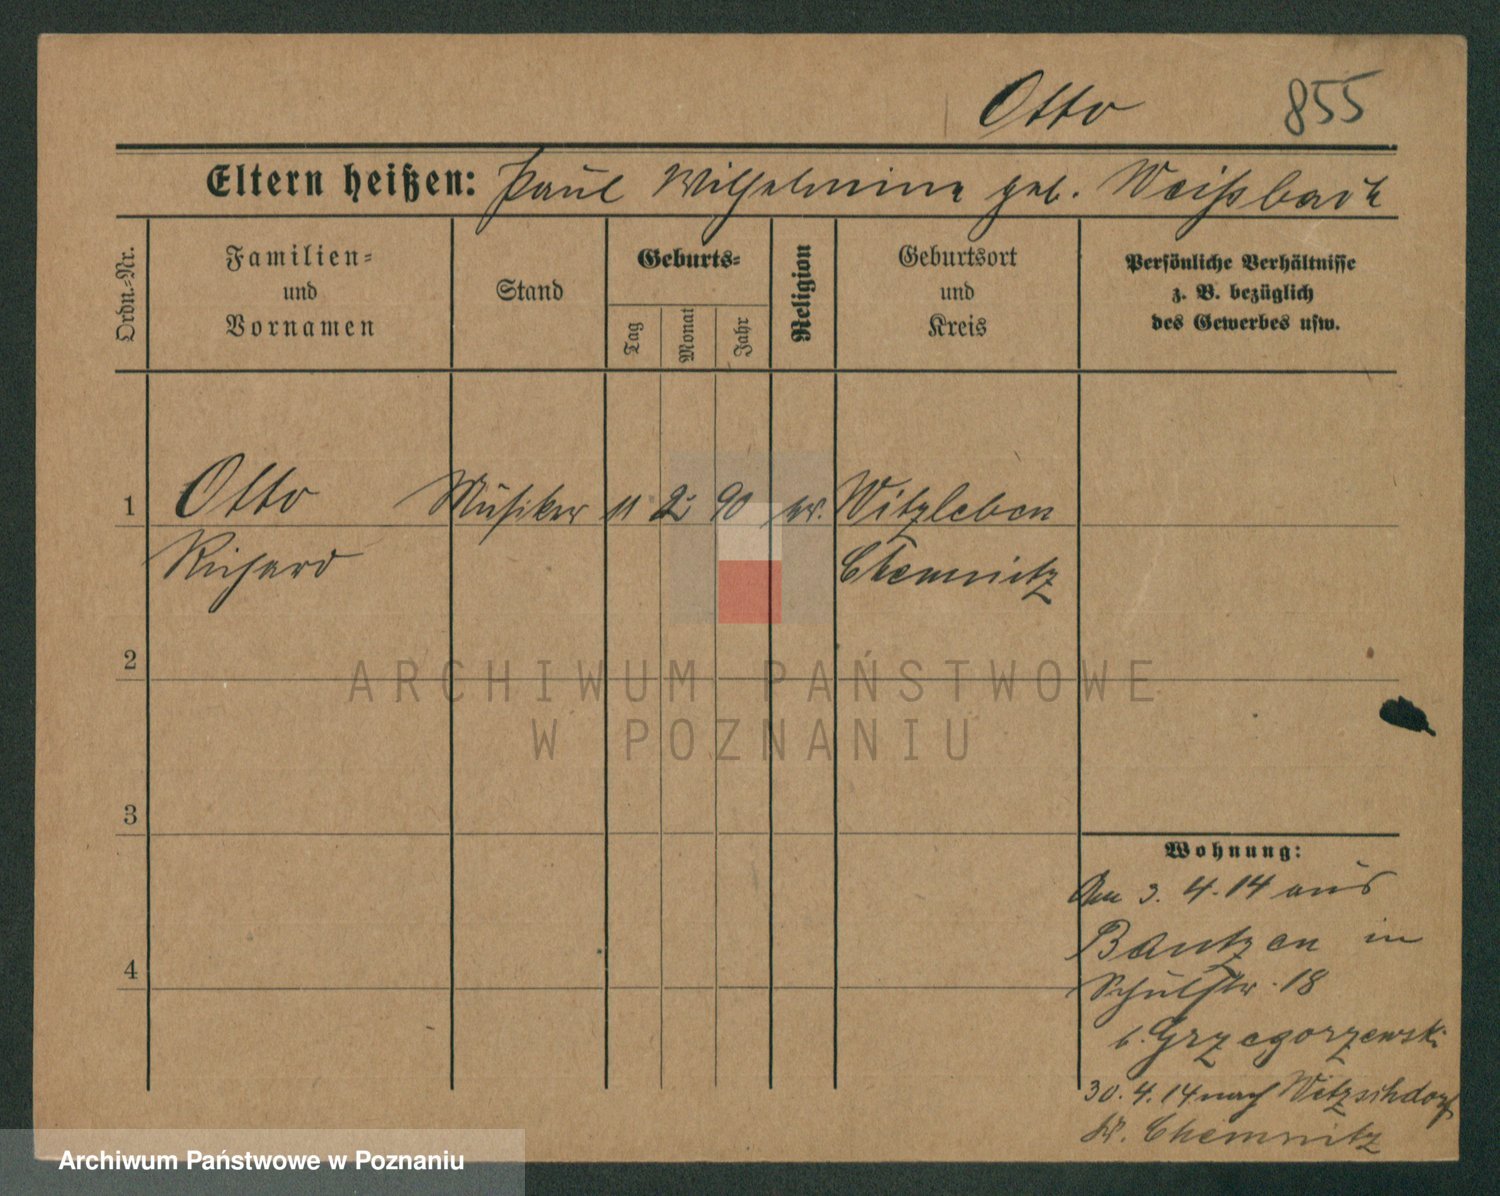 Otto 855
Eltern heißen: Paul Wilhelmine geb. Weißbach
Ordn.-Nr.
Familien-
und
Vornamen
Stand
Geburts-
Tag
Monat
Jahr
Religion
Geburtsort
und
Kreis
Persönliche Verhältnisse
z. B. bezüglich
des Gewerbes usw.
1 Otto Musiker 11 2 90 ev. Witzleben
Richard Chemnitz
2
ARCHIWUM PAŃSTWOWE
W POZNANIU
3
Wohnung:
Am 3. 4. 14 aus
Bautzen in
4
Schulstr. 18
b. Grzegorzewski
30. 4. 14 nach Witzschdorf
Kr. Chemnitz
Archiwum Państwowe w Poznaniu